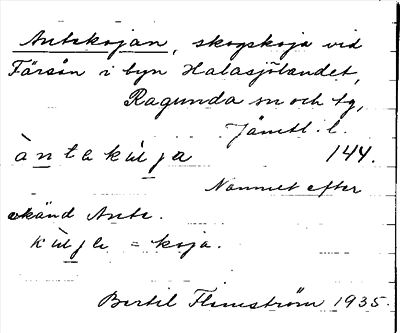 Antskojan, skogskoja vid
Färsån i byn Halasjölandet,
Ragunda sn och tg,
Jämtl. l.
àntakùja 144.
Namnet efter
okänd Ante.
kùje = koja.
Bertil Flemström 1935.